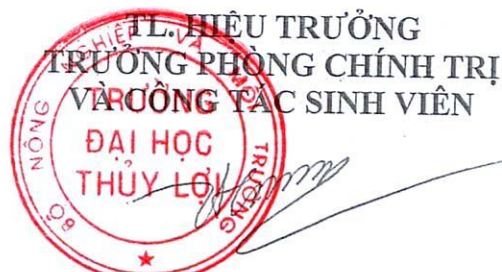 TL. HIỆU TRƯỞNG
TRƯỞNG PHÒNG CHÍNH TRỊ
VÀ CÔNG TÁC SINH VIÊN
BỘ NÔNG NGHIỆP VÀ MÔI TRƯỜNG
TRƯỜNG
ĐẠI HỌC
THỦY LỢI